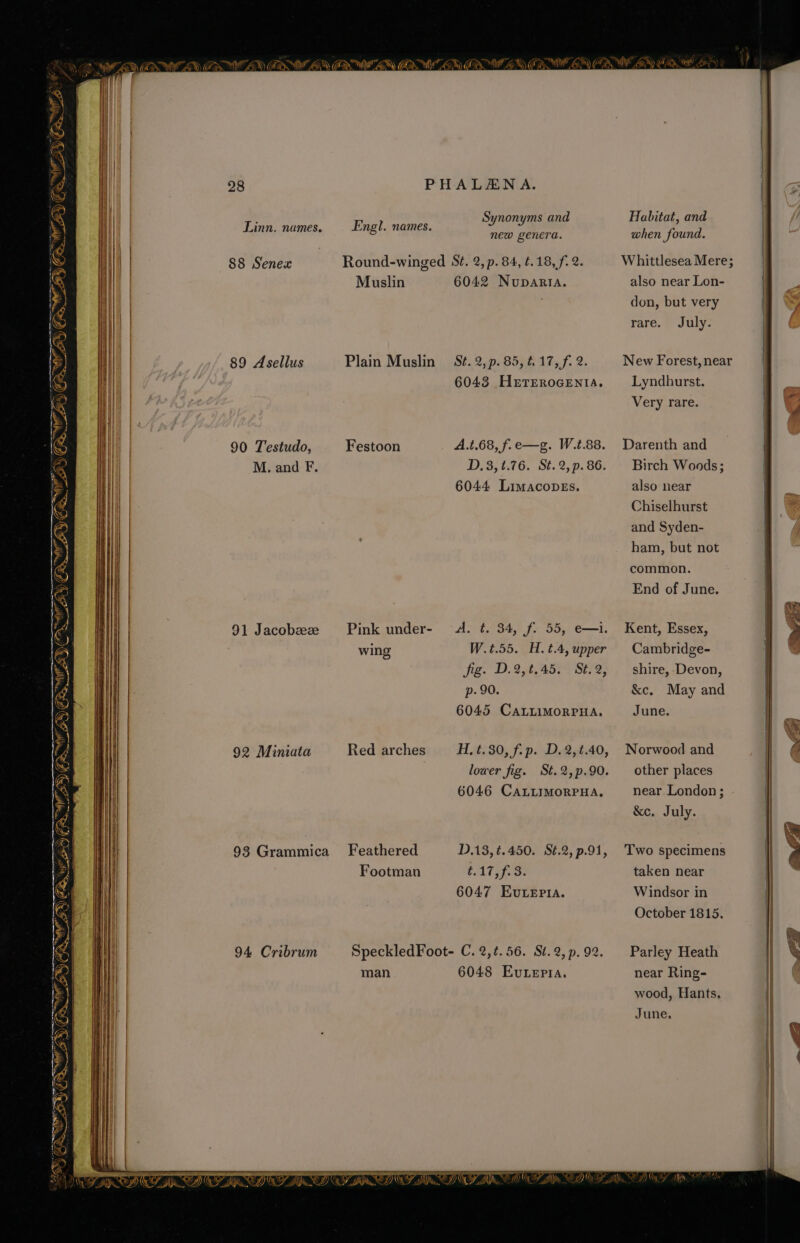 28 PHALÆNA.
Linn. names. Engl. names. Synonyms and new genera. Habitat, and when found.
88 Senex Round-winged St. 2, p. 84, t. 18, f. 2. Whittlesea Mere;
Muslin 6042 NUDARIA. also near Lon-
don, but very
rare. July.
89 Asellus Plain Muslin St. 2, p. 85, t. 17, f. 2. New Forest, near
6043 HETEROGENIA. Lyndhurst.
Very rare.
90 Testudo, Festoon A.t.68, f. e—g. W.t.88. Darenth and
M. and F. D.3, t.76. St. 2, p. 86. Birch Woods;
6044 LIMACODES. also near
Chiselhurst
and Syden-
ham, but not
common.
End of June.
91 Jacobææ Pink under- A. t. 34, f. 55, e—i. Kent, Essex,
wing W.t.55. H. t.4, upper Cambridge-
fig. D.2, t.45. St. 2, shire, Devon,
p. 90. &c. May and
6045 CALLIMORPHA. June.
92 Miniata Red arches H. t.30, f. p. D. 2, t.40, Norwood and
lower fig. St. 2, p.90. other places
6046 CALLIMORPHA. near London;
&c. July.
93 Grammica Feathered D.13, t. 450. St.2, p.91, Two specimens
Footman t. 17, f. 3. taken near
6047 EULEPIA. Windsor in
October 1815.
94 Cribrum Speckled Foot- C. 2, t. 56. St. 2, p. 92. Parley Heath
man 6048 EULEPIA. near Ring-
wood, Hants.
June.